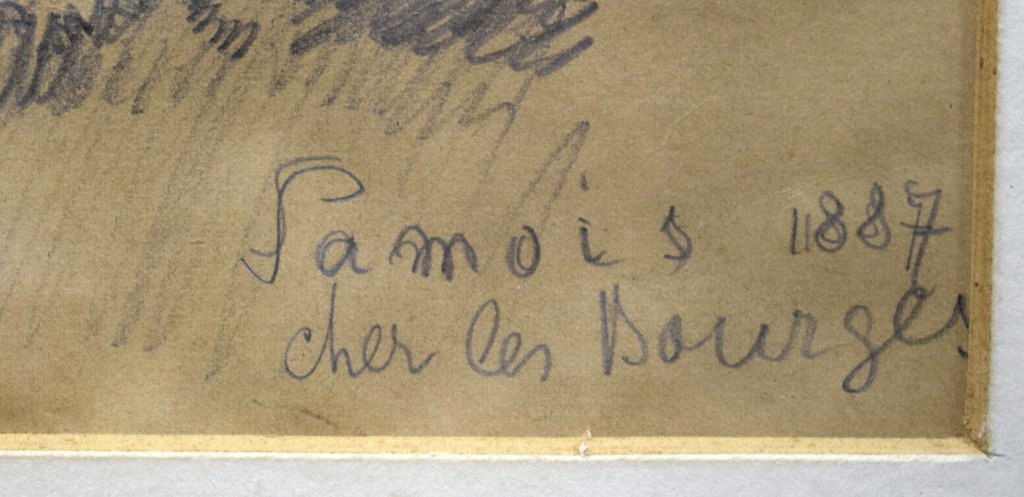 Samois 1887
cher les Bourges